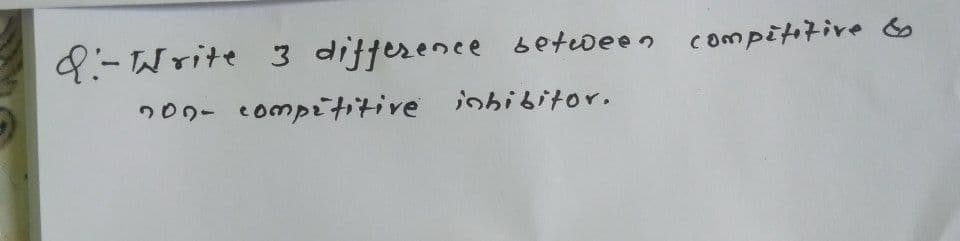 Q:- Write 3 difference between compititive &
non- compititive inhibitor.